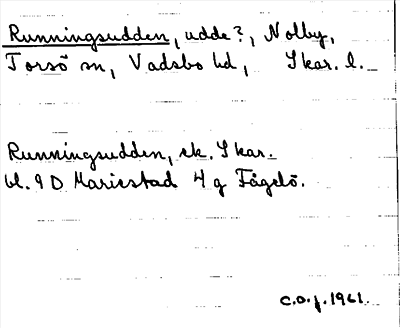 Runningsudden, udde?, Nolby,
Torsö sn, Vadsbo hd, Skar. l.
Runningsudden, ek. Skar.
bl. 9 D Mariestad 4 g Fågelö.
c.o.j. 1961.